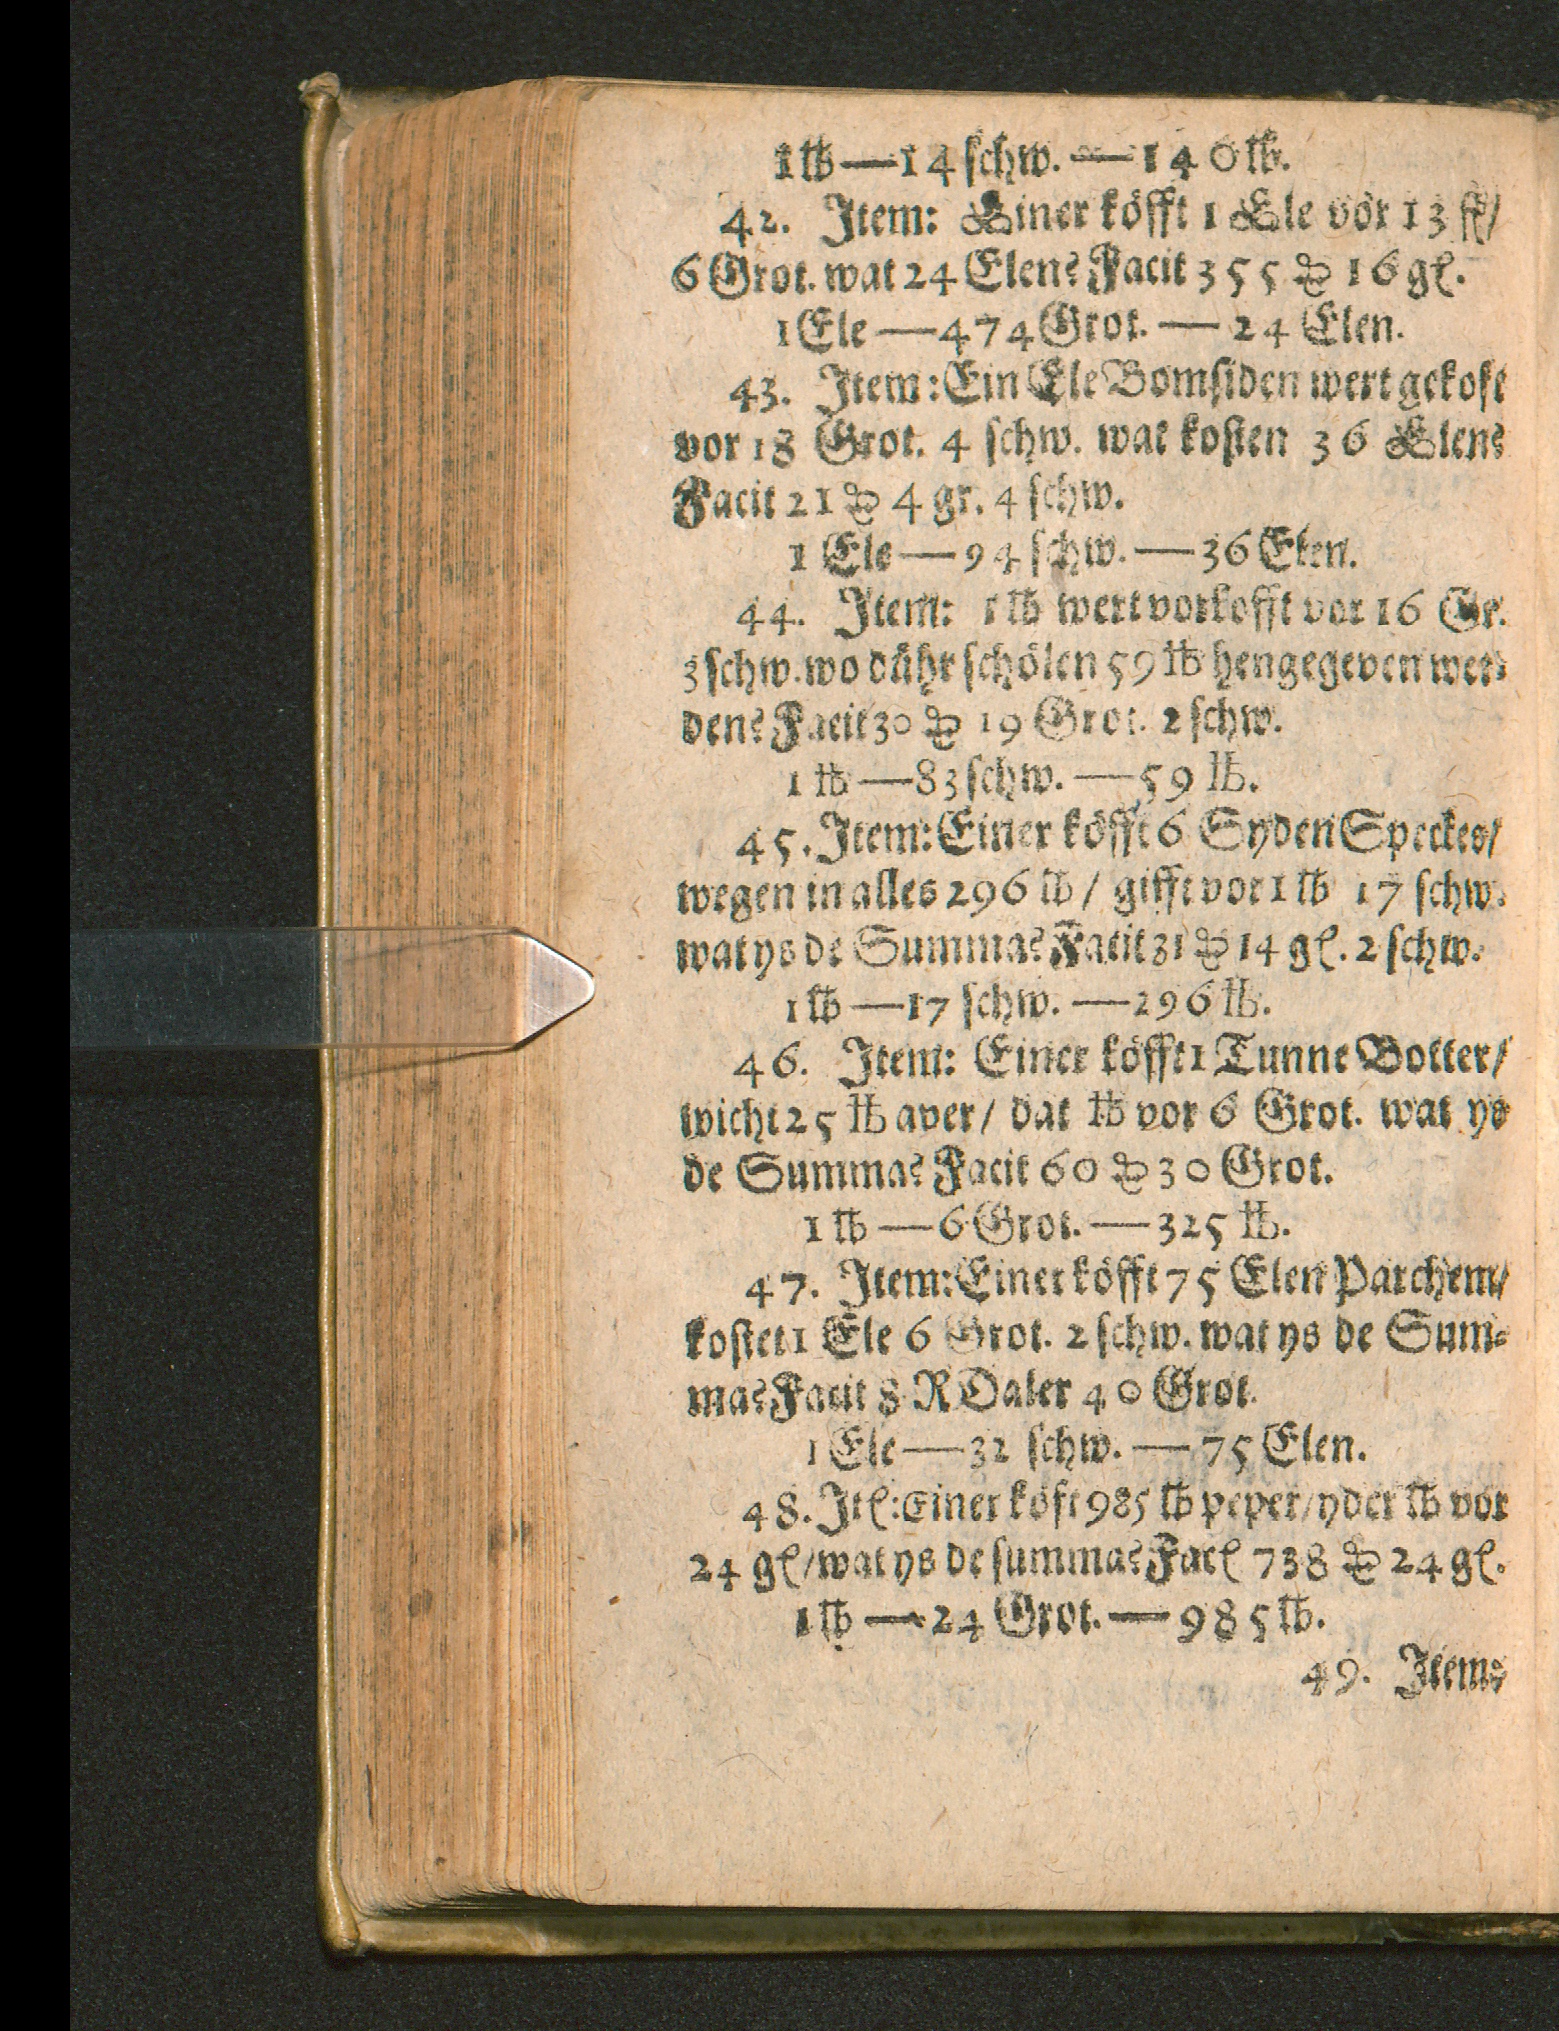 1 ℔ — 14 schw. — 140 ℔.
42. Item: Einer köfft 1 Ele vör 13 ß/
6 Grot. wat 24 Elen? Facit 355 ₰ 16 gl.
1 Ele — 474 Grot. — 24 Elen.
43. Item: Ein Ele Bomsiden wert gekoft
vor 18 Grot. 4 schw. wat kosten 36 Elen?
Facit 21 ₰ 4 gr. 4 schw.
1 Ele — 94 schw. — 36 Elen.
44. Item: 1 ℔ wert vorkofft vor 16 Gr.
3 schw. wo dühr schölen 59 ℔ hengegeven wer-
den? Facit 30 ₰ 19 Grot. 2 schw.
1 ℔ — 83 schw. — 59 ℔.
45. Item: Einer köfft 6 Syden Speckes/
wegen in alles 296 ℔ / gifft vor 1 ℔ 17 schw.
wat ys de Summa? Facit 31 ₰ 14 gl. 2 schw.
1 ℔ — 17 schw. — 296 ℔.
46. Item: Einer köfft 1 Tunne Botter/
wicht 25 ℔ aver / dat ℔ vor 6 Grot. wat ys
de Summa? Facit 60 ₰ 30 Grot.
1 ℔ — 6 Grot. — 325 ℔.
47. Item: Einer köfft 75 Elen Parchem/
kostet 1 Ele 6 Grot. 2 schw. wat ys de Sum-
ma? Facit 8 R Daler 40 Grot.
1 Ele — 32 schw. — 75 Elen.
48. Itl: Einer köft 985 ℔ peper / yder ℔ vor
24 gl / wat ys de summa? Facl 738 ₰ 24 gl.
1 ℔ — 24 Grot. — 985 ℔.
49. Item: